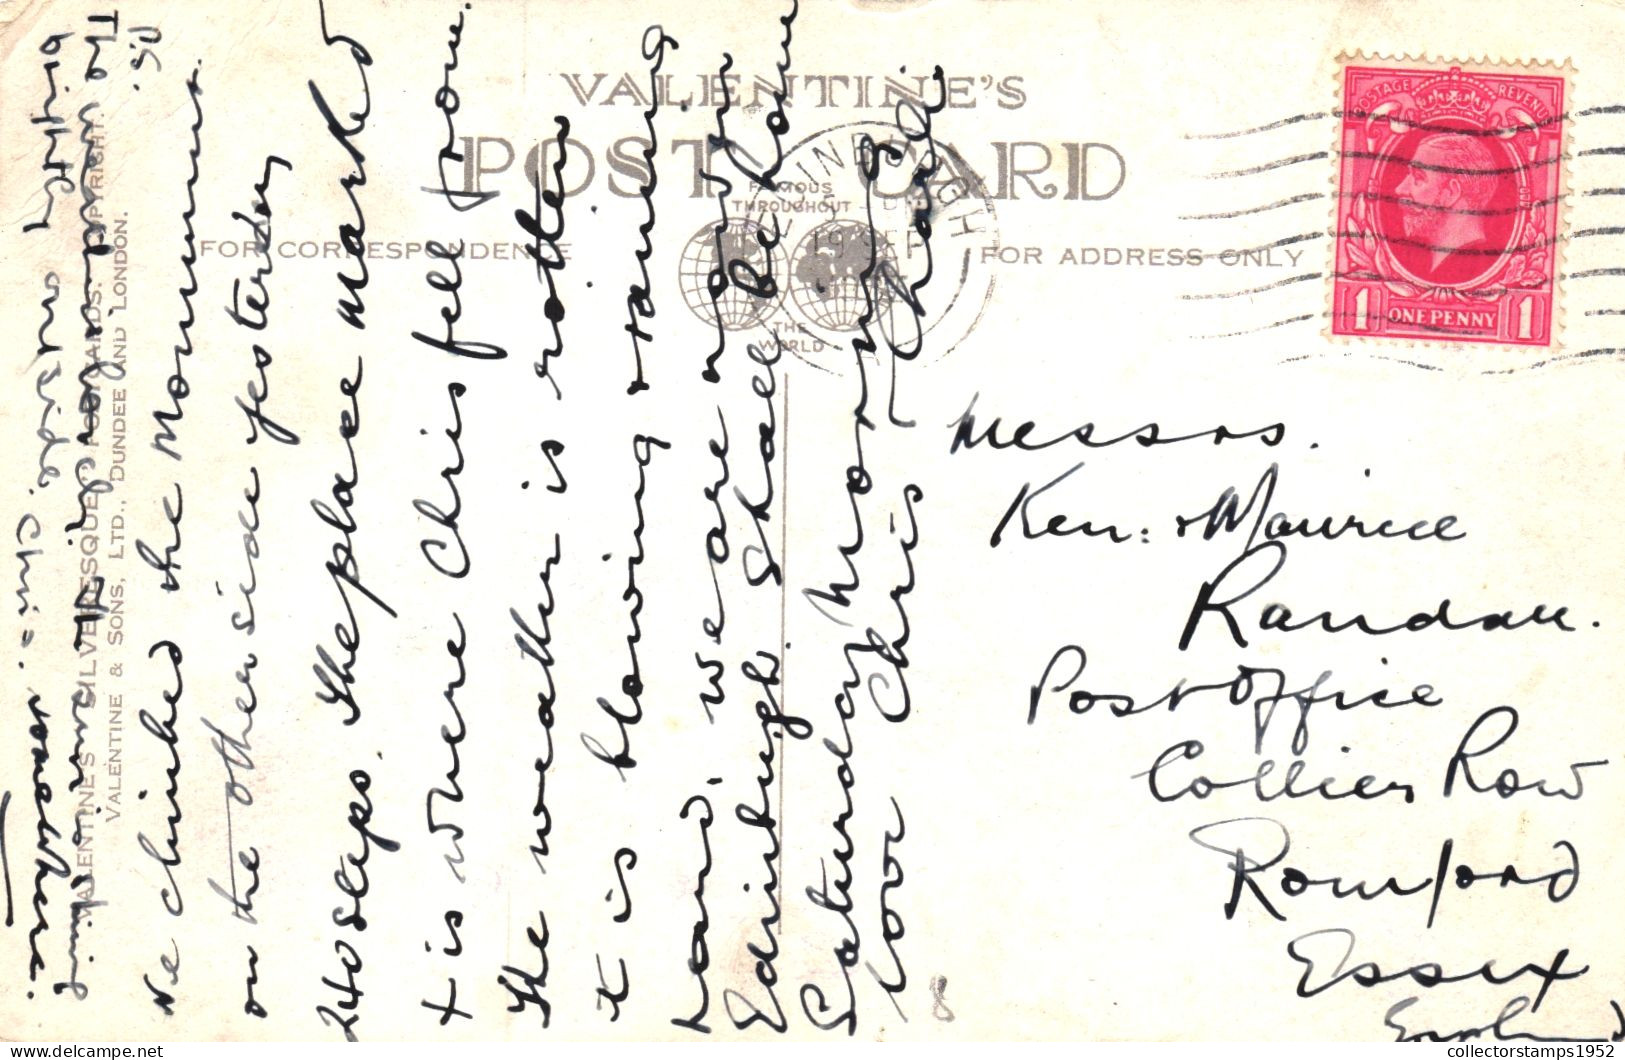 VALENTINE'S
POST CARD
FAMOUS
THROUGHOUT
THE
WORLD
FOR CORRESPONDENCE
FOR ADDRESS ONLY
VALENTINE'S "SILVERESQUE" POSTCARDS. COPYRIGHT.
VALENTINE & SONS, LTD., DUNDEE AND LONDON.
EDINBURGH
19 SEP
POSTAGE REVENUE
1 ONE PENNY 1
We climbed the Monument
on the other side yesterday
240 steps. The place marked
+ is where Chris fell from.
The weather is rotten
it is blowing & raining
hard, we are now in
Edinburgh. Shall be home
Saturday Morning
love Chris Charli
P.S.
The
brightly outside. Chris. somewhere.
Messrs.
Ken: & Maurice
Randall.
Post Office
Collier Row
Romford
Essex
England
8
collectorstamps1952